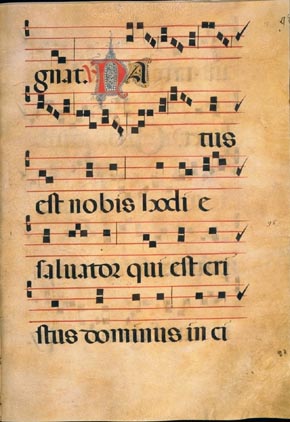 gnat. NA
tus
est nobis hodi e
salvator qui est cri
stus dominus in ci